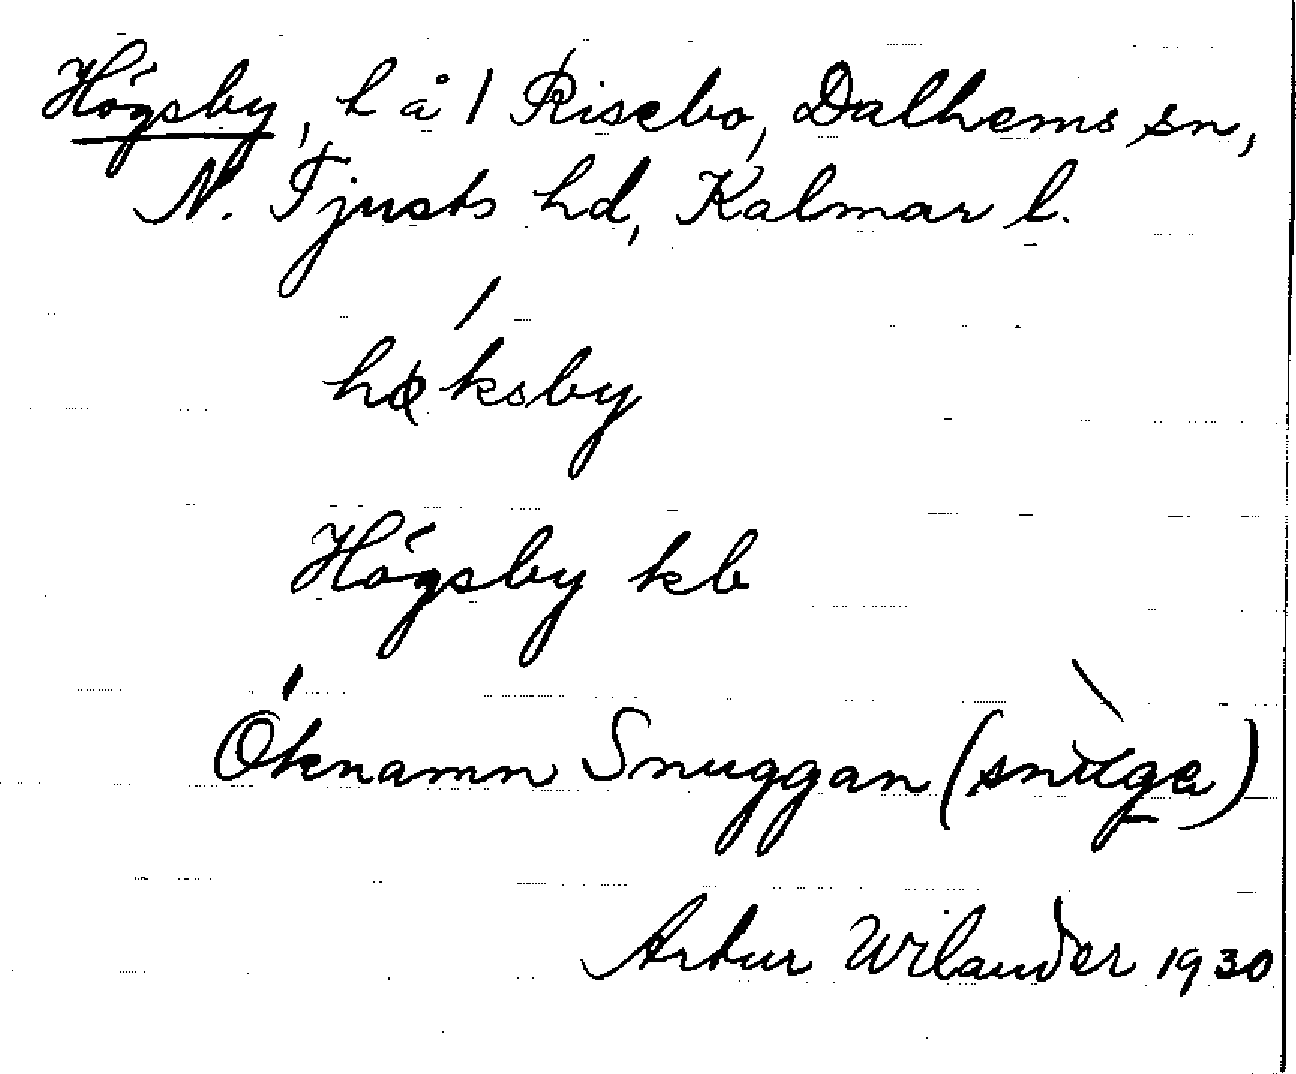 Högsby, h å / Risebo, Dalhems sn,
N. Tjusts hd, Kalmar l.
Högsby kb
Öknamn Snuggan
Artur Wilander 1930